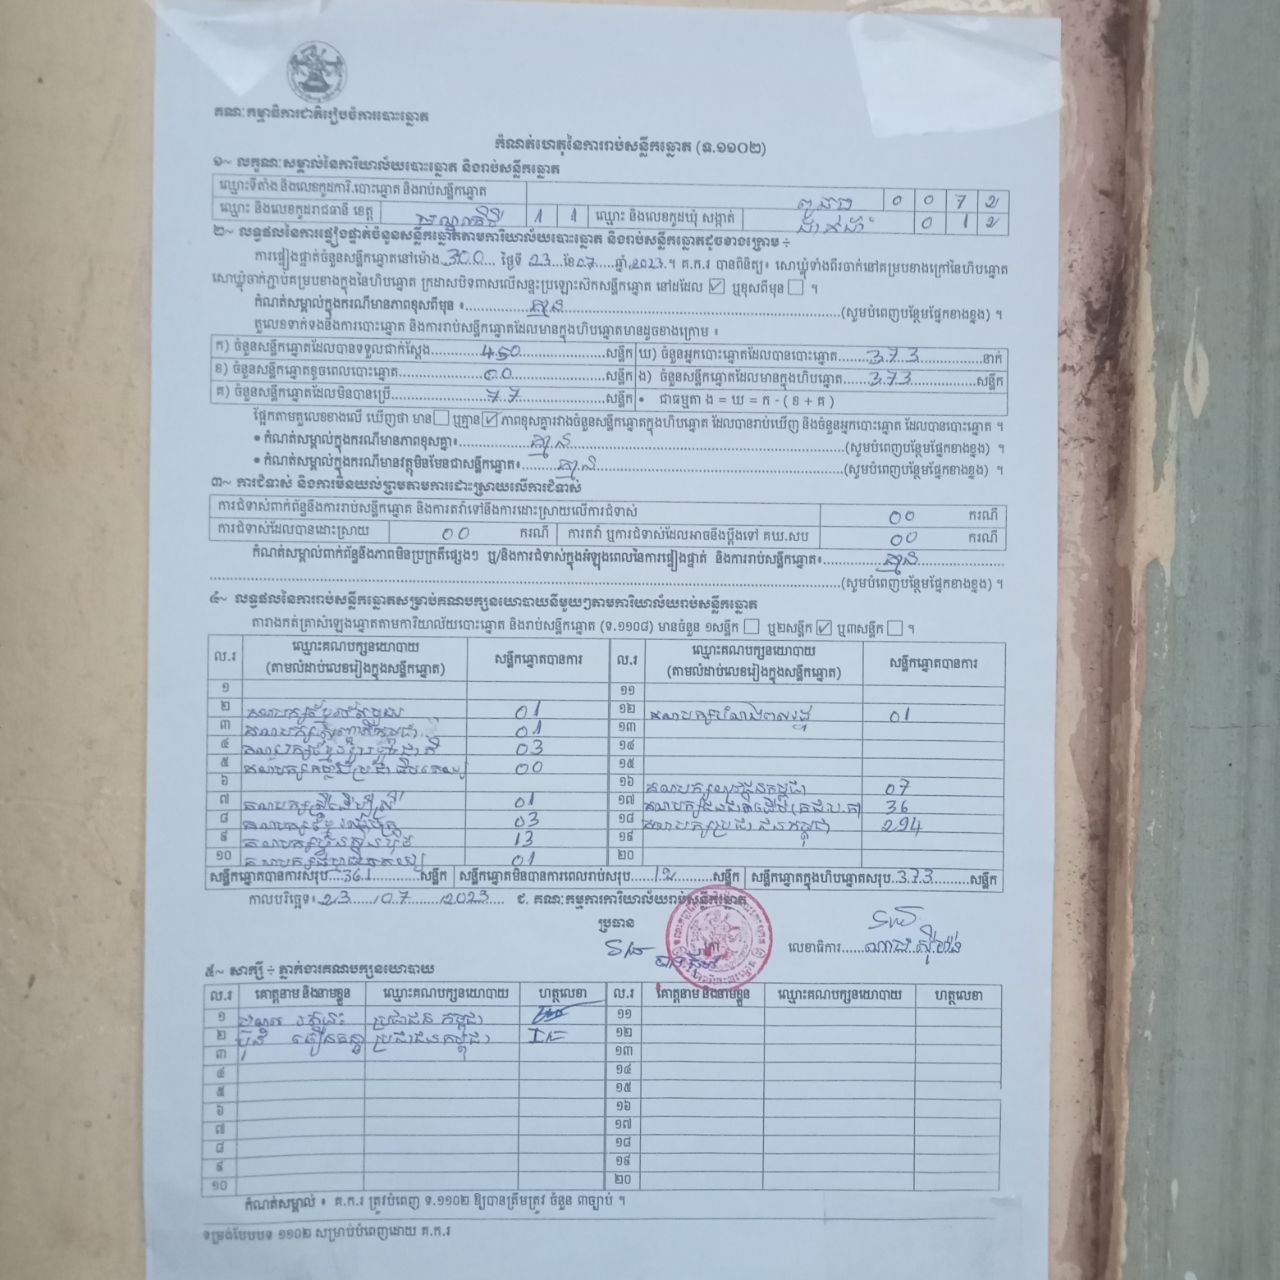 គណៈកម្មាធិការជាតិរៀបចំការបោះឆ្នោត
កំណត់ហេតុនៃការរាប់សន្លឹកឆ្នោត (ទ.១១០២)
១~ លក្ខណៈសម្គាល់នៃការិយាល័យបោះឆ្នោត និងរាប់សន្លឹកឆ្នោត
ឈ្មោះទីតាំង និងលេខកូដការិ.បោះឆ្នោត និងរាប់សន្លឹកឆ្នោត 0 0 7 2
ឈ្មោះ និងលេខកូដរាជធានី ខេត្ត 1 1 ឈ្មោះ និងលេខកូដឃុំ សង្កាត់ 0 1 2
២~ លទ្ធផលនៃការផ្ទៀងផ្ទាត់ចំនួនសន្លឹកឆ្នោតតាមការិយាល័យបោះឆ្នោត និងរាប់សន្លឹកឆ្នោតដូចខាងក្រោម ÷
ការផ្ទៀងផ្ទាត់ចំនួនសន្លឹកឆ្នោតនៅម៉ោង 3:00 ថ្ងៃទី 23 ខែ 07 ឆ្នាំ 2023 ។ គ.ក.រ បានពិនិត្យ៖ សោឃ្លុំទាំងពីរចាក់នៅគម្របខាងក្រៅនៃហិបឆ្នោត
សោឃ្លុំចាក់ភ្ជាប់គម្របខាងក្នុងនៃហិបឆ្នោត ក្រដាសបិទពាសលើសន្ទះប្រឡោះសិកសន្លឹកឆ្នោត នៅដដែល ☑ ឬខុសពីមុន ☐ ។
កំណត់សម្គាល់ក្នុងករណីមានភាពខុសពីមុន ៖ គ្មាន (សូមបំពេញបន្ថែមផ្នែកខាងខ្នង) ។
តួលេខទាក់ទងនឹងការបោះឆ្នោត និងការរាប់សន្លឹកឆ្នោតដែលមានក្នុងហិបឆ្នោតមានដូចខាងក្រោម ៖
ក) ចំនួនសន្លឹកឆ្នោតដែលបានទទួលជាក់ស្តែង 450 សន្លឹក ឃ) ចំនួនអ្នកបោះឆ្នោតដែលបានបោះឆ្នោត 373 នាក់
ខ) ចំនួនសន្លឹកឆ្នោតខូចពេលបោះឆ្នោត 00 សន្លឹក ង) ចំនួនសន្លឹកឆ្នោតដែលមានក្នុងហិបឆ្នោត 373 សន្លឹក
គ) ចំនួនសន្លឹកឆ្នោតដែលមិនបានប្រើ 77 សន្លឹក • ជាធម្មតា ង = ឃ = ក - ( ខ + គ )
ផ្អែកតាមតួលេខខាងលើ ឃើញថា មាន ☐ ឬគ្មាន ☑ ភាពខុសគ្នារវាងចំនួនសន្លឹកឆ្នោតក្នុងហិបឆ្នោត ដែលបានរាប់ឃើញ និងចំនួនអ្នកបោះឆ្នោត ដែលបានបោះឆ្នោត ។
• កំណត់សម្គាល់ក្នុងករណីមានភាពខុសគ្នា៖ គ្មាន (សូមបំពេញបន្ថែមផ្នែកខាងខ្នង) ។
• កំណត់សម្គាល់ក្នុងករណីមានវត្ថុមិនមែនជាសន្លឹកឆ្នោត៖ គ្មាន (សូមបំពេញបន្ថែមផ្នែកខាងខ្នង) ។
៣~ ការជំទាស់ និងការមិនយល់ព្រមតាមការដោះស្រាយលើការជំទាស់
ការជំទាស់ពាក់ព័ន្ធនឹងការរាប់សន្លឹកឆ្នោត និងការតវ៉ាទៅនឹងការដោះស្រាយលើការជំទាស់ 00 ករណី
ការជំទាស់ដែលបានដោះស្រាយ 00 ករណី ការតវ៉ា ឬការជំទាស់ដែលអាចនឹងប្តឹងទៅ គឃ.សប 00 ករណី
កំណត់សម្គាល់ពាក់ព័ន្ធនឹងភាពមិនប្រក្រតីផ្សេងៗ ឬ/និងការជំទាស់ក្នុងអំឡុងពេលនៃការផ្ទៀងផ្ទាត់ និងការរាប់សន្លឹកឆ្នោត៖ គ្មាន
(សូមបំពេញបន្ថែមផ្នែកខាងខ្នង) ។
៤~ លទ្ធផលនៃការរាប់សន្លឹកឆ្នោតសម្រាប់គណបក្សនយោបាយនីមួយៗតាមការិយាល័យរាប់សន្លឹកឆ្នោត
តារាងកត់ត្រាសំឡេងឆ្នោតតាមការិយាល័យបោះឆ្នោត និងរាប់សន្លឹកឆ្នោត (ទ.១១០៨) មានចំនួន ១សន្លឹក ☐ ឬ២សន្លឹក ☑ ឬ៣សន្លឹក ☐ ។
ល.រ ឈ្មោះគណបក្សនយោបាយ (តាមលំដាប់លេខរៀងក្នុងសន្លឹកឆ្នោត) សន្លឹកឆ្នោតបានការ ល.រ ឈ្មោះគណបក្សនយោបាយ (តាមលំដាប់លេខរៀងក្នុងសន្លឹកឆ្នោត) សន្លឹកឆ្នោតបានការ
១ ១១
២ 01 ១២ 01
៣ 01 ១៣
៤ 03 ១៤
៥ 00 ១៥
៦ ១៦ 07
៧ 01 ១៧ 36
៨ 03 ១៨ គណបក្សប្រជាជនកម្ពុជា 294
៩ 13 ១៩
១០ 01 ២០
សន្លឹកឆ្នោតបានការសរុប 361 សន្លឹក សន្លឹកឆ្នោតមិនបានការពេលរាប់សរុប 12 សន្លឹក សន្លឹកឆ្នោតក្នុងហិបឆ្នោតសរុប 373 សន្លឹក
កាលបរិច្ឆេទ៖ 23 07 2023 ៥. គណៈកម្មការការិយាល័យរាប់សន្លឹកឆ្នោត
ប្រធាន
លេខាធិការ
៥~ សាក្សី ÷ ភ្នាក់ងារគណបក្សនយោបាយ
ល.រ គោត្តនាម និងនាមខ្លួន ឈ្មោះគណបក្សនយោបាយ ហត្ថលេខា ល.រ គោត្តនាម និងនាមខ្លួន ឈ្មោះគណបក្សនយោបាយ ហត្ថលេខា
១ ប្រជាជន កម្ពុជា ១១
២ ប្រជាជនកម្ពុជា ១២
៣ ១៣
៤ ១៤
៥ ១៥
៦ ១៦
៧ ១៧
៨ ១៨
៩ ១៩
១០ ២០
កំណត់សម្គាល់ ៖ គ.ក.រ ត្រូវបំពេញ ទ.១១០២ ឱ្យបានត្រឹមត្រូវ ចំនួន ៣ច្បាប់ ។
ទម្រង់បែបបទ ១១០២ សម្រាប់បំពេញដោយ គ.ក.រ